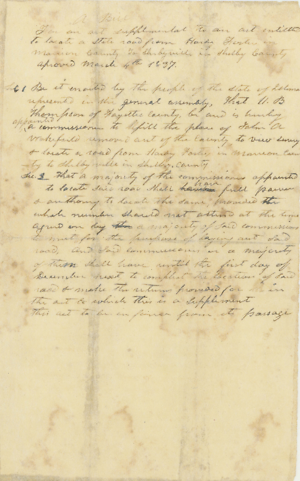 A Bill
For an act supplemental to an act entitled
to locate a State road from Hardy Foster in
Marion County to Shelbyville in Shelby County
aproved March 6th 1827.
Sec 1 Be it enacted by the people of the state of Illinois
represented in the general assembly, That W. B
Thompson of Fayette County be and is hereby
appointed
a commissioner to fill the place of John A
Wakefield removed out of the County to view survey
& locate a road from Hardy Foster in Marion Coun
ty to Shelbyville in Shelby County
Sec 2 That a majority of the commissioners appointed
to locate said road shall have full power
& authority to locate the same, provided the
whole number should not attend at the time
agreed on by a majority of said commissioners
to meet for the purpose of laying out said
road and said commissioners or a majority
of them shall have until the first day of
December next to complete the location of said
road & make the returns provided for in
the act to which this is a supplement
this act to be in force from its passage